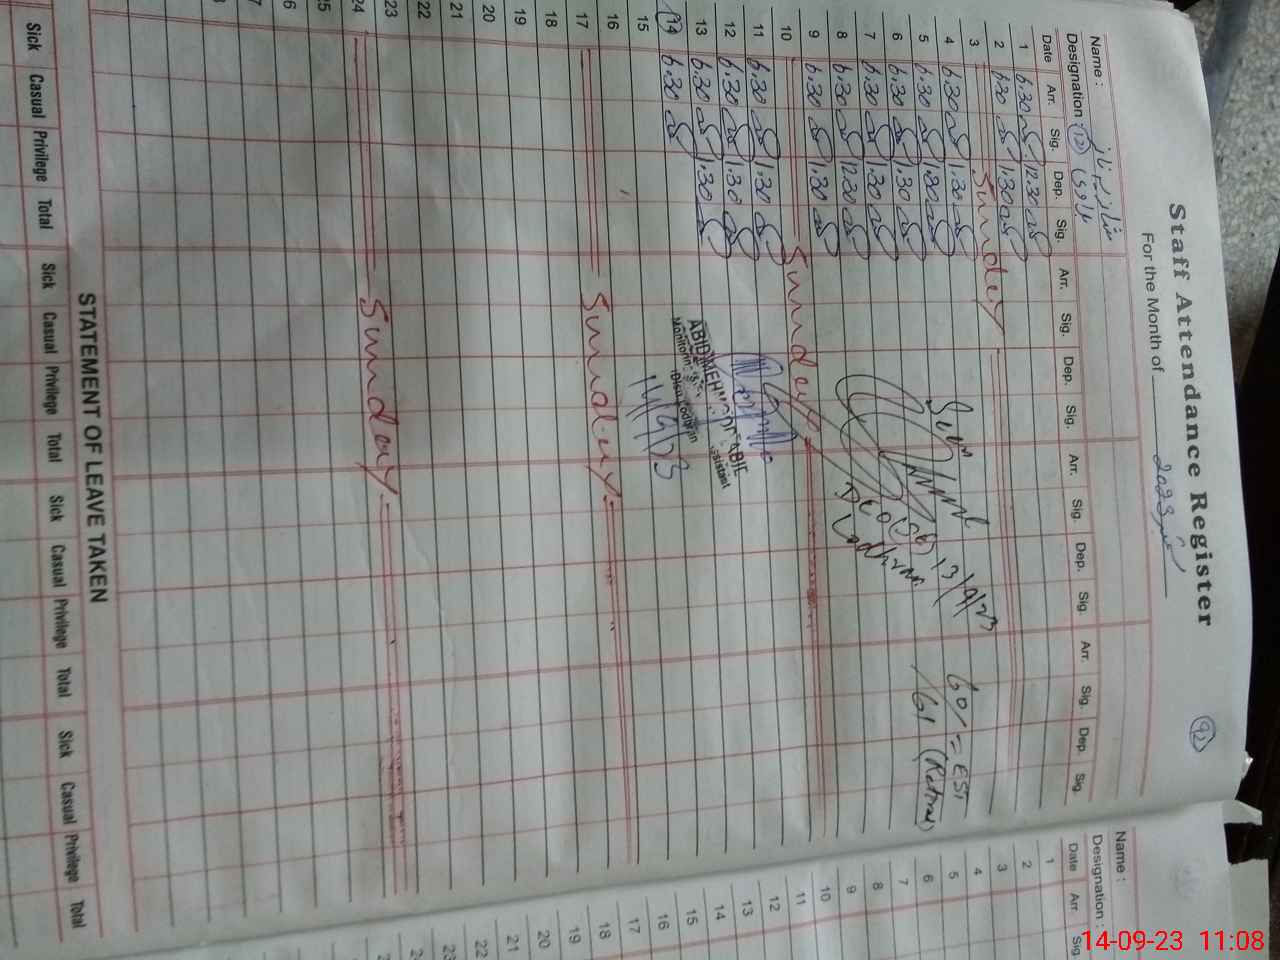 Staff Attendance Register
For the Month of 2023 ستمبر
92
Name : شازیہ ناز
Designation :
Date Arr. Sig. Dep. Sig. Arr. Sig. Dep. Sig. Arr. Sig. Dep. Sig. Arr. Sig. Dep. Sig.
1 6.30 12.30
2 6.30 1.30
3 Sunday
4 6.30 1.30
5 6.30 1.30
6 6.30 1.30
7 6.30 1.30
8 6.30 12.30
9 6.30 1.30
10 Sunday
11 6.30 1.30
12 6.30 1.30
13 6.30 1.30
14 6.30
15
16
17 Sunday
18
19
20
21
22
23
24 Sunday
25
13/9/23
Lodhran
60/- = EST
/61 (Retire)
ABID
Lodhran
14/9/23
STATEMENT OF LEAVE TAKEN
Sick Casual Privilege Total Sick Casual Privilege Total Sick Casual Privilege Total Sick Casual Privilege Total
Name :
Designation :
Date Arr. Sig.
1
2
3
4
5
6
7
8
9
10
11
12
13
14
15
16
17
18
19
20
21
22
23
14-09-23 11:08